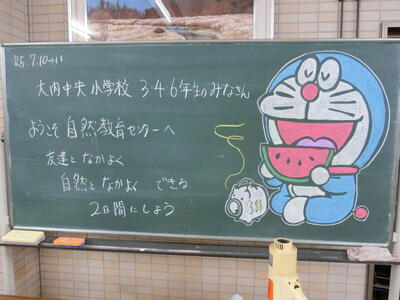 '25.7.10→11
大内中央小学校 3・4・6年生のみなさん
ようこそ 自然教育センターへ
友達となかよく
自然となかよく できる
2日間にしよう
$$$